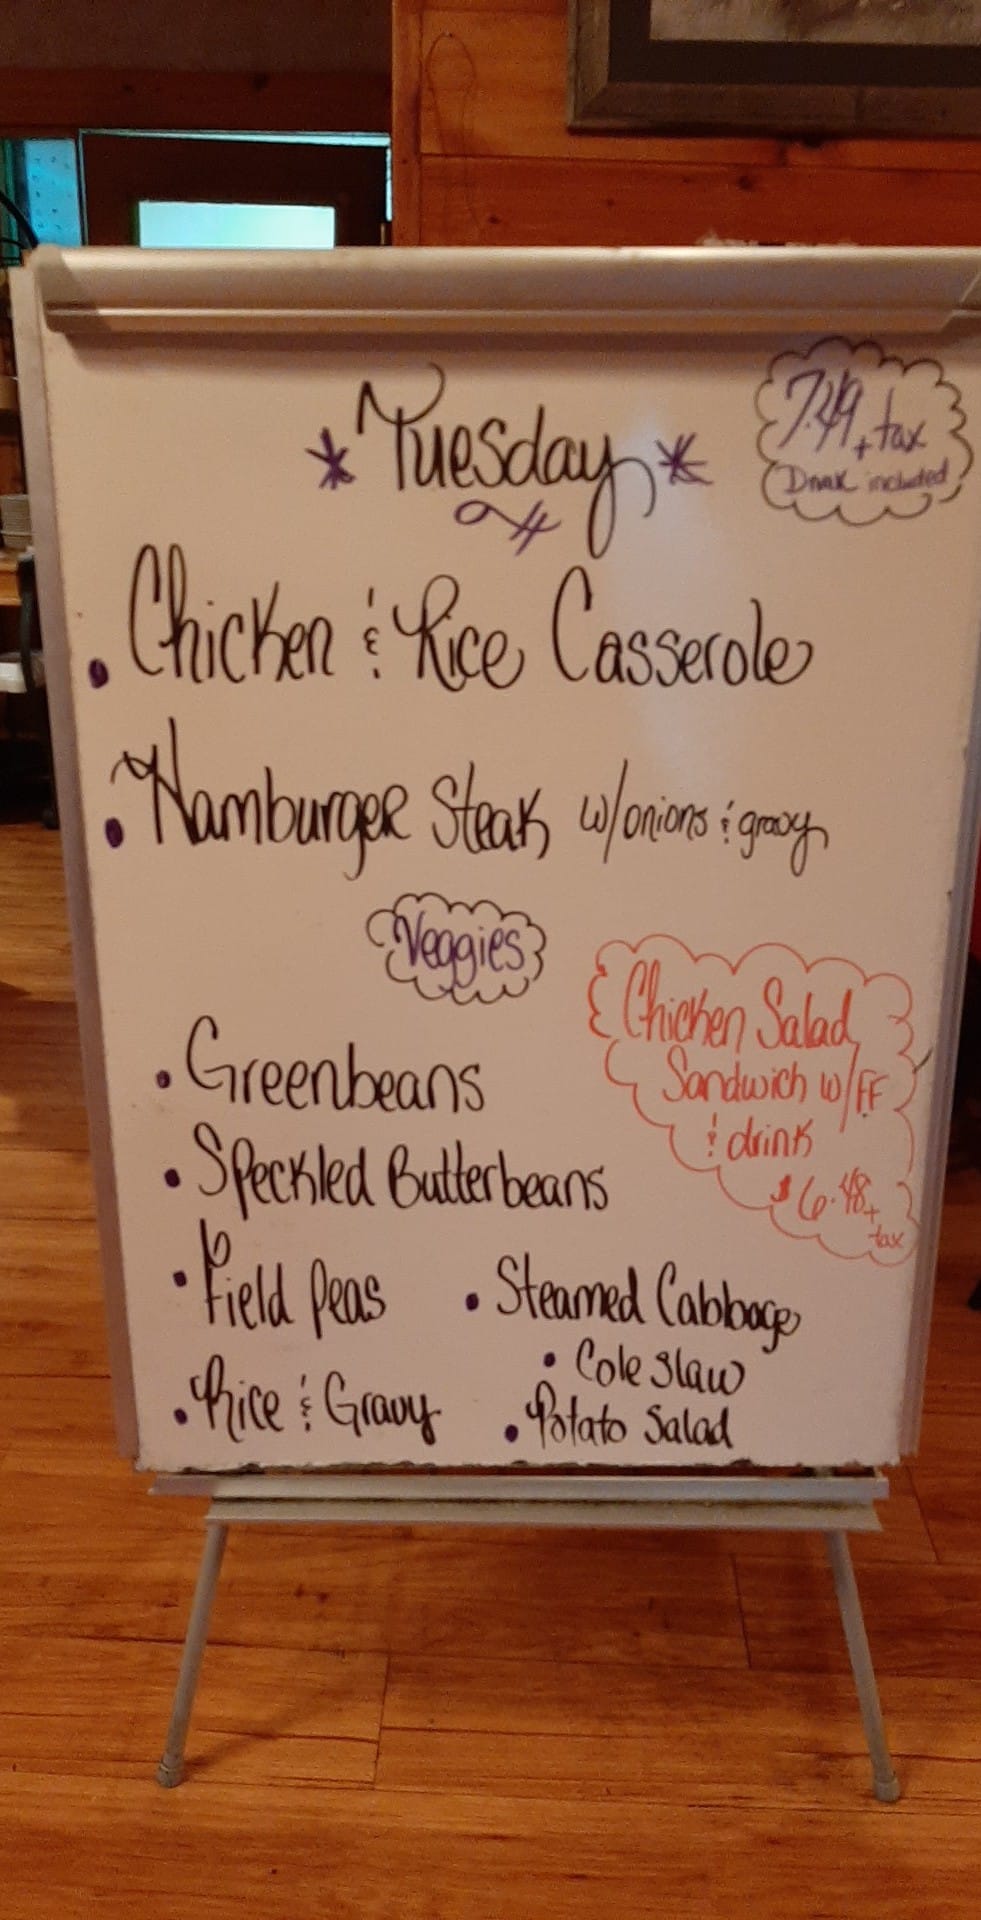 * Tuesday *
7.49 + tax
Drink included
• Chicken & Rice Casserole
• Hamburger Steak w/onions & gravy
Veggies
Chicken Salad
Sandwich w/FF
& drink
$6.48 +
tax
• Greenbeans
• Speckled Butterbeans
• Field Peas
• Steamed Cabbage
• Cole Slaw
• Rice & Gravy
• Potato Salad